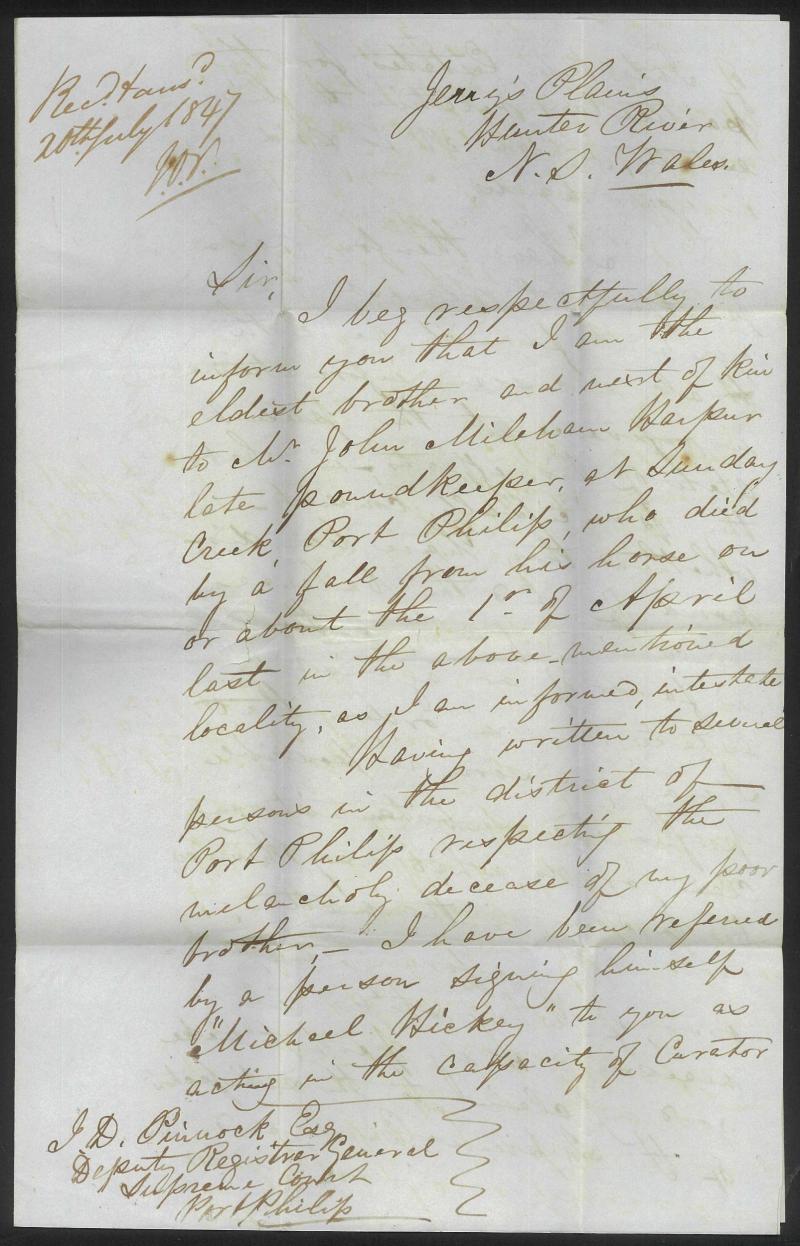 Recd & ansd
20th July 1847
Jerry's Plains
Hunter River
N. S. Wales.
Sir,
I beg respectfully to
inform you that I am the
eldest brother and next of kin
to Mr. John Mileham Harpur
late poundkeeper, at Sunday
Creek, Port Philip, who died
by a fall from his horse on
or about the 1st of April
last in the above-mentioned
locality, as I am informed, intestate
Having written to several
persons in the district of
Port Philip respecting the
melancholy decease of my poor
brother,— I have been referred
by a person signing himself
"Michael Hickey" to you as
acting in the capacity of Curator
J. D. Pinnock Esq
Deputy Registrar General
Supreme Court
Port Philip